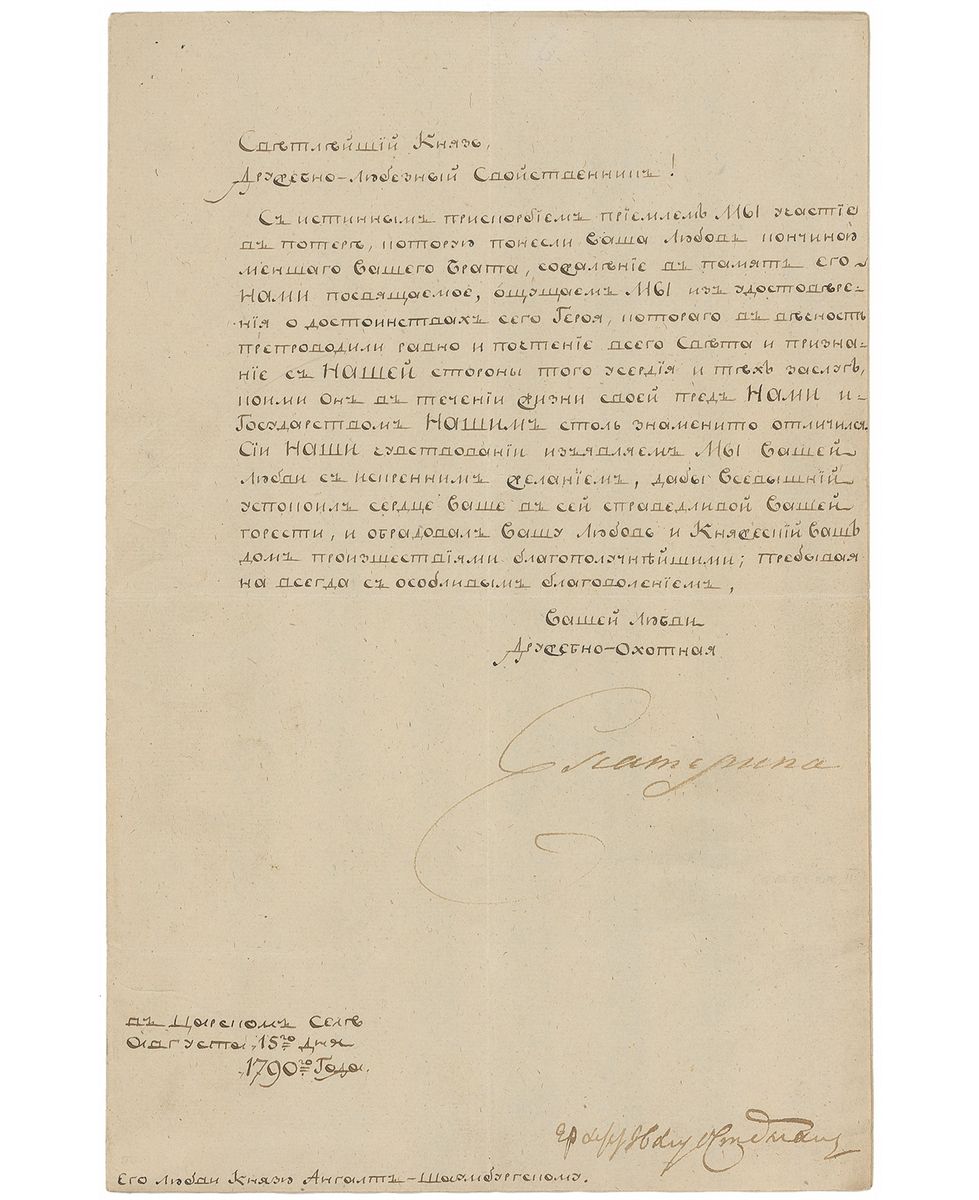 Свѣтлѣйшій Князь,
Дружебно-Любезный Свойственникъ!
Съ истиннымъ прискорбіемъ пріемлемъ МЫ участіе
въ потерѣ, которую понесли Ваша Любовь кончиною
меншаго Вашего Брата, сожалѣніе въ память его
НАМИ посвящаемое, ощущаемъ МЫ изъ удостовѣре-
нія о достоинствахъ сего Героя, котораго въ вѣчность
препроводили равно и почтеніе всего Свѣта и призна-
ніе съ НАШЕЙ стороны того усердія и тѣхъ заслугъ,
коими Онъ въ теченіи жизни своей предъ НАМИ и
Государствомъ НАШИМЪ столь знаменито отличился.
Сіи НАШИ чувствованіи изъявляемъ МЫ Вашей
Любви съ искреннимъ желаніемъ, дабы Всевышній
успокоилъ сердце Ваше въ сей справедливой Вашей
горести, и обрадовалъ Вашу Любовь и Княжескій Вашъ
домъ произшествіями благополучнѣйшими; пребывая
на всегда съ особливымъ благоволеніемъ,
Вашей Любви
Дружебно-Охотная
Екатерина
въ Царскомъ Селѣ
Августа 15го дня
1790го Года.
Графъ Иванъ Остерманъ
Его Любви Князю Ангалтъ-Шаумбургскому.